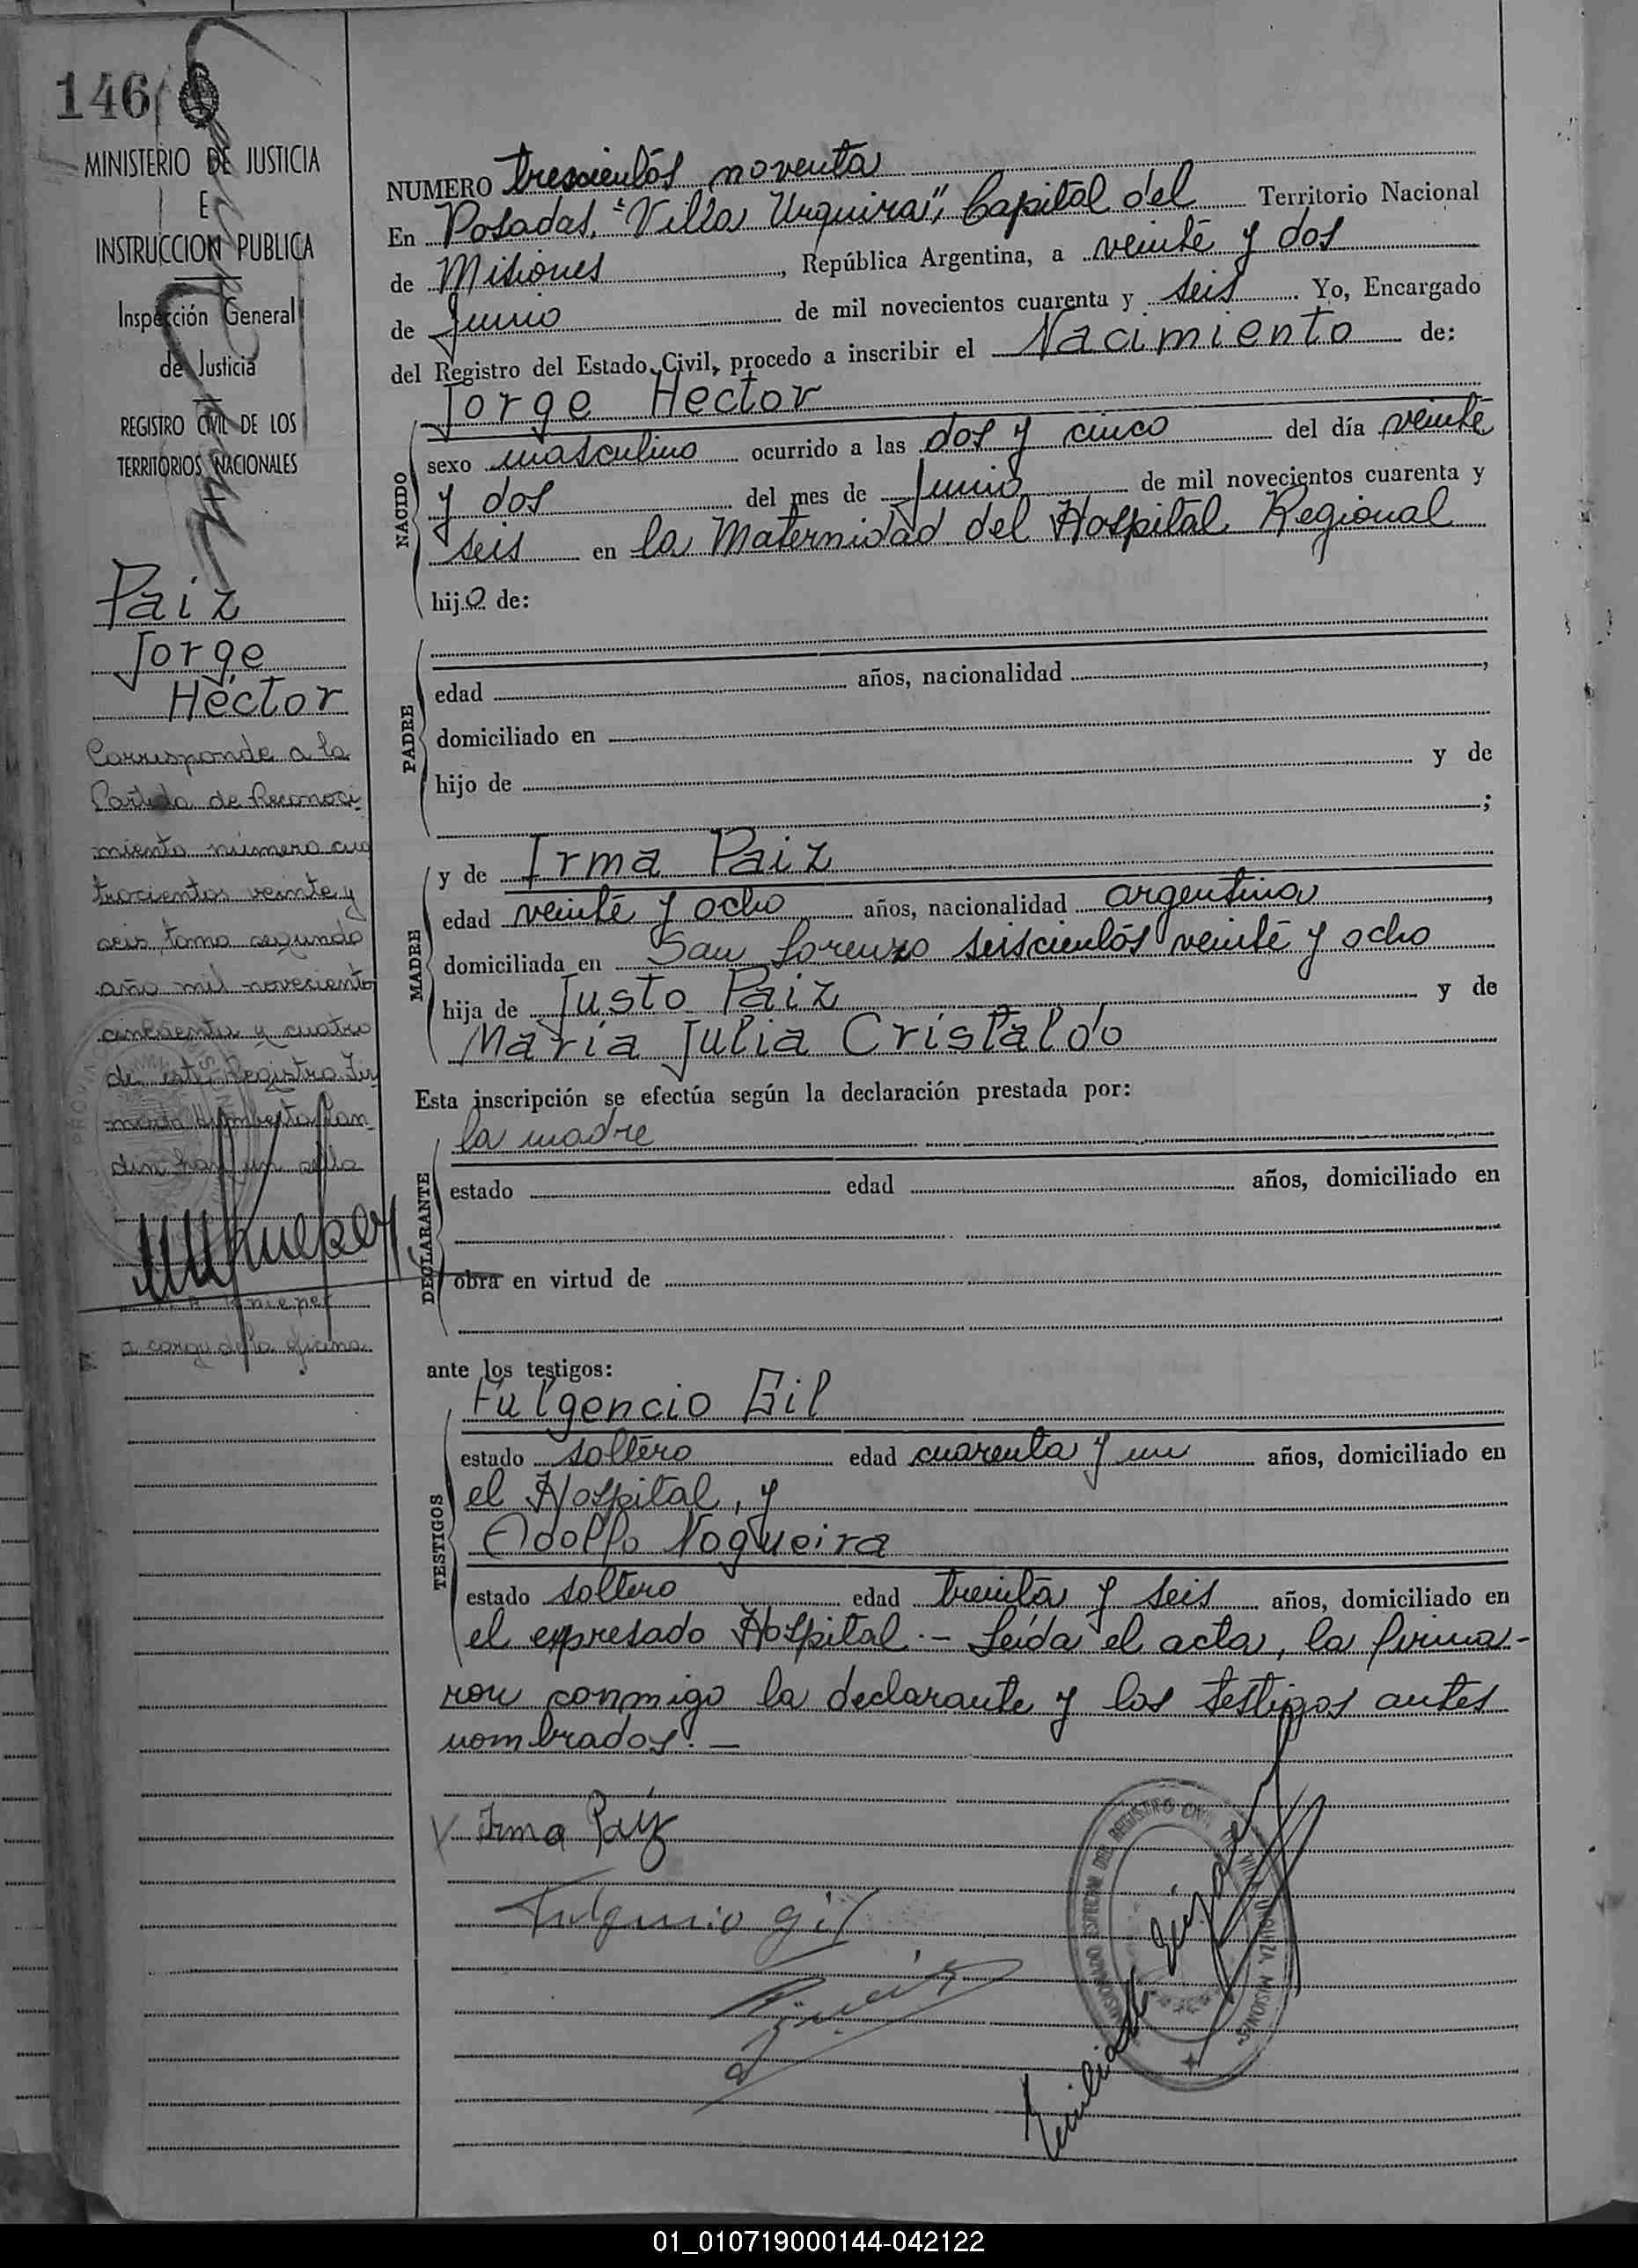 146
MINISTERIO DE JUSTICIA
E
INSTRUCCION PUBLICA
Inspección General
de Justicia
REGISTRO CIVIL DE LOS
TERRITORIOS NACIONALES
Paiz
Jorge
Héctor
Corresponde a la
Partida de Reconoci-
miento número cua
trocientos veinte y
seis, tomo segundo
año mil novecientos
cincuenta y cuatro
de este Registro. Fir
mado Humberto
hay un sello
a cargo de la oficina
NUMERO trescientos noventa
En Posadas, "Villa Urquiza", Capital del Territorio Nacional
de Misiones, República Argentina, a veinte y dos
de Junio de mil novecientos cuarenta y seis. Yo, Encargado
del Registro del Estado Civil, procedo a inscribir el Nacimiento de:
NACIDO
Jorge Hector
sexo masculino ocurrido a las dos y cinco del día veinte
y dos del mes de Junio de mil novecientos cuarenta y
seis en la Maternidad del Hospital Regional
hijo de:
PADRE
edad años, nacionalidad ,
domiciliado en
hijo de y de
;
MADRE
y de Irma Paiz
edad veinte y ocho años, nacionalidad argentina,
domiciliada en San Lorenzo seiscientos veinte y ocho
hija de Justo Paiz y de
María Julia Cristaldo
Esta inscripción se efectúa según la declaración prestada por:
DECLARANTE
la madre
estado edad años, domiciliado en
obra en virtud de
ante los testigos:
TESTIGOS
Fulgencio Gil
estado soltero edad cuarenta y un años, domiciliado en
el Hospital, y
Adolfo Nogueira
estado soltero edad treinta y seis años, domiciliado en
el expresado Hospital.- Leída el acta, la firma-
ron conmigo la declarante y los testigos antes
nombrados.-
Irma Paiz
Fulgencio Gil
REGISTRO CIVIL
VILLA URQUIZA, MISIONES
01_010719000144-042122